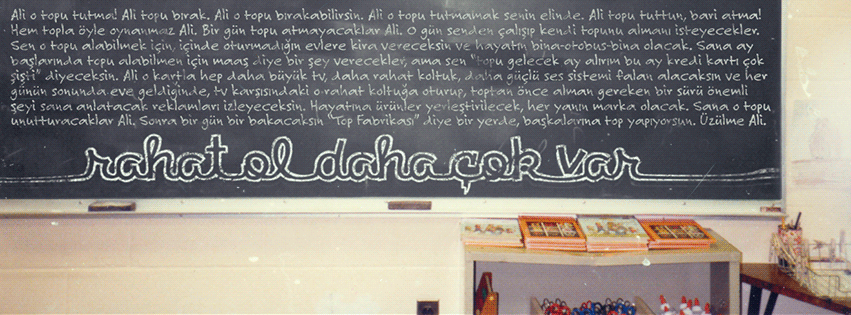 Ali o topu tutma! Ali topu bırak. Ali o topu bırakabilirsin. Ali o topu tutmamak senin elinde. Ali topu tuttun, bari atma!
Hem topla öyle oynanmaz Ali. Bir gün topu atmayacaklar Ali. O gün senden çalışıp kendi topunu almanı isteyecekler.
Sen o topu alabilmek için, içinde oturmadığın evlere kira vereceksin ve hayatın bina-otobus-bina olacak. Sana ay
başlarında topu alabilmen için maaş diye bir şey verecekler, ama sen "topu gelecek ay alırım bu ay kredi kartı çok
şişti" diyeceksin. Ali o kartla hep daha büyük tv, daha rahat koltuk, daha güçlü ses sistemi falan alacaksın ve her
günün sonunda eve geldiğinde, tv karşısındaki o rahat koltuğa oturup, toptan önce alman gereken bir sürü önemli
şeyi sana anlatacak reklamları izleyeceksin. Hayatına ürünler yerleştirilecek, her yanın marka olacak. Sana o topu
unutturacaklar Ali. Sonra bir gün bir bakacaksın "Top Fabrikası" diye bir yerde, başkalarına top yapıyorsun. Üzülme Ali.
rahat ol daha çok var